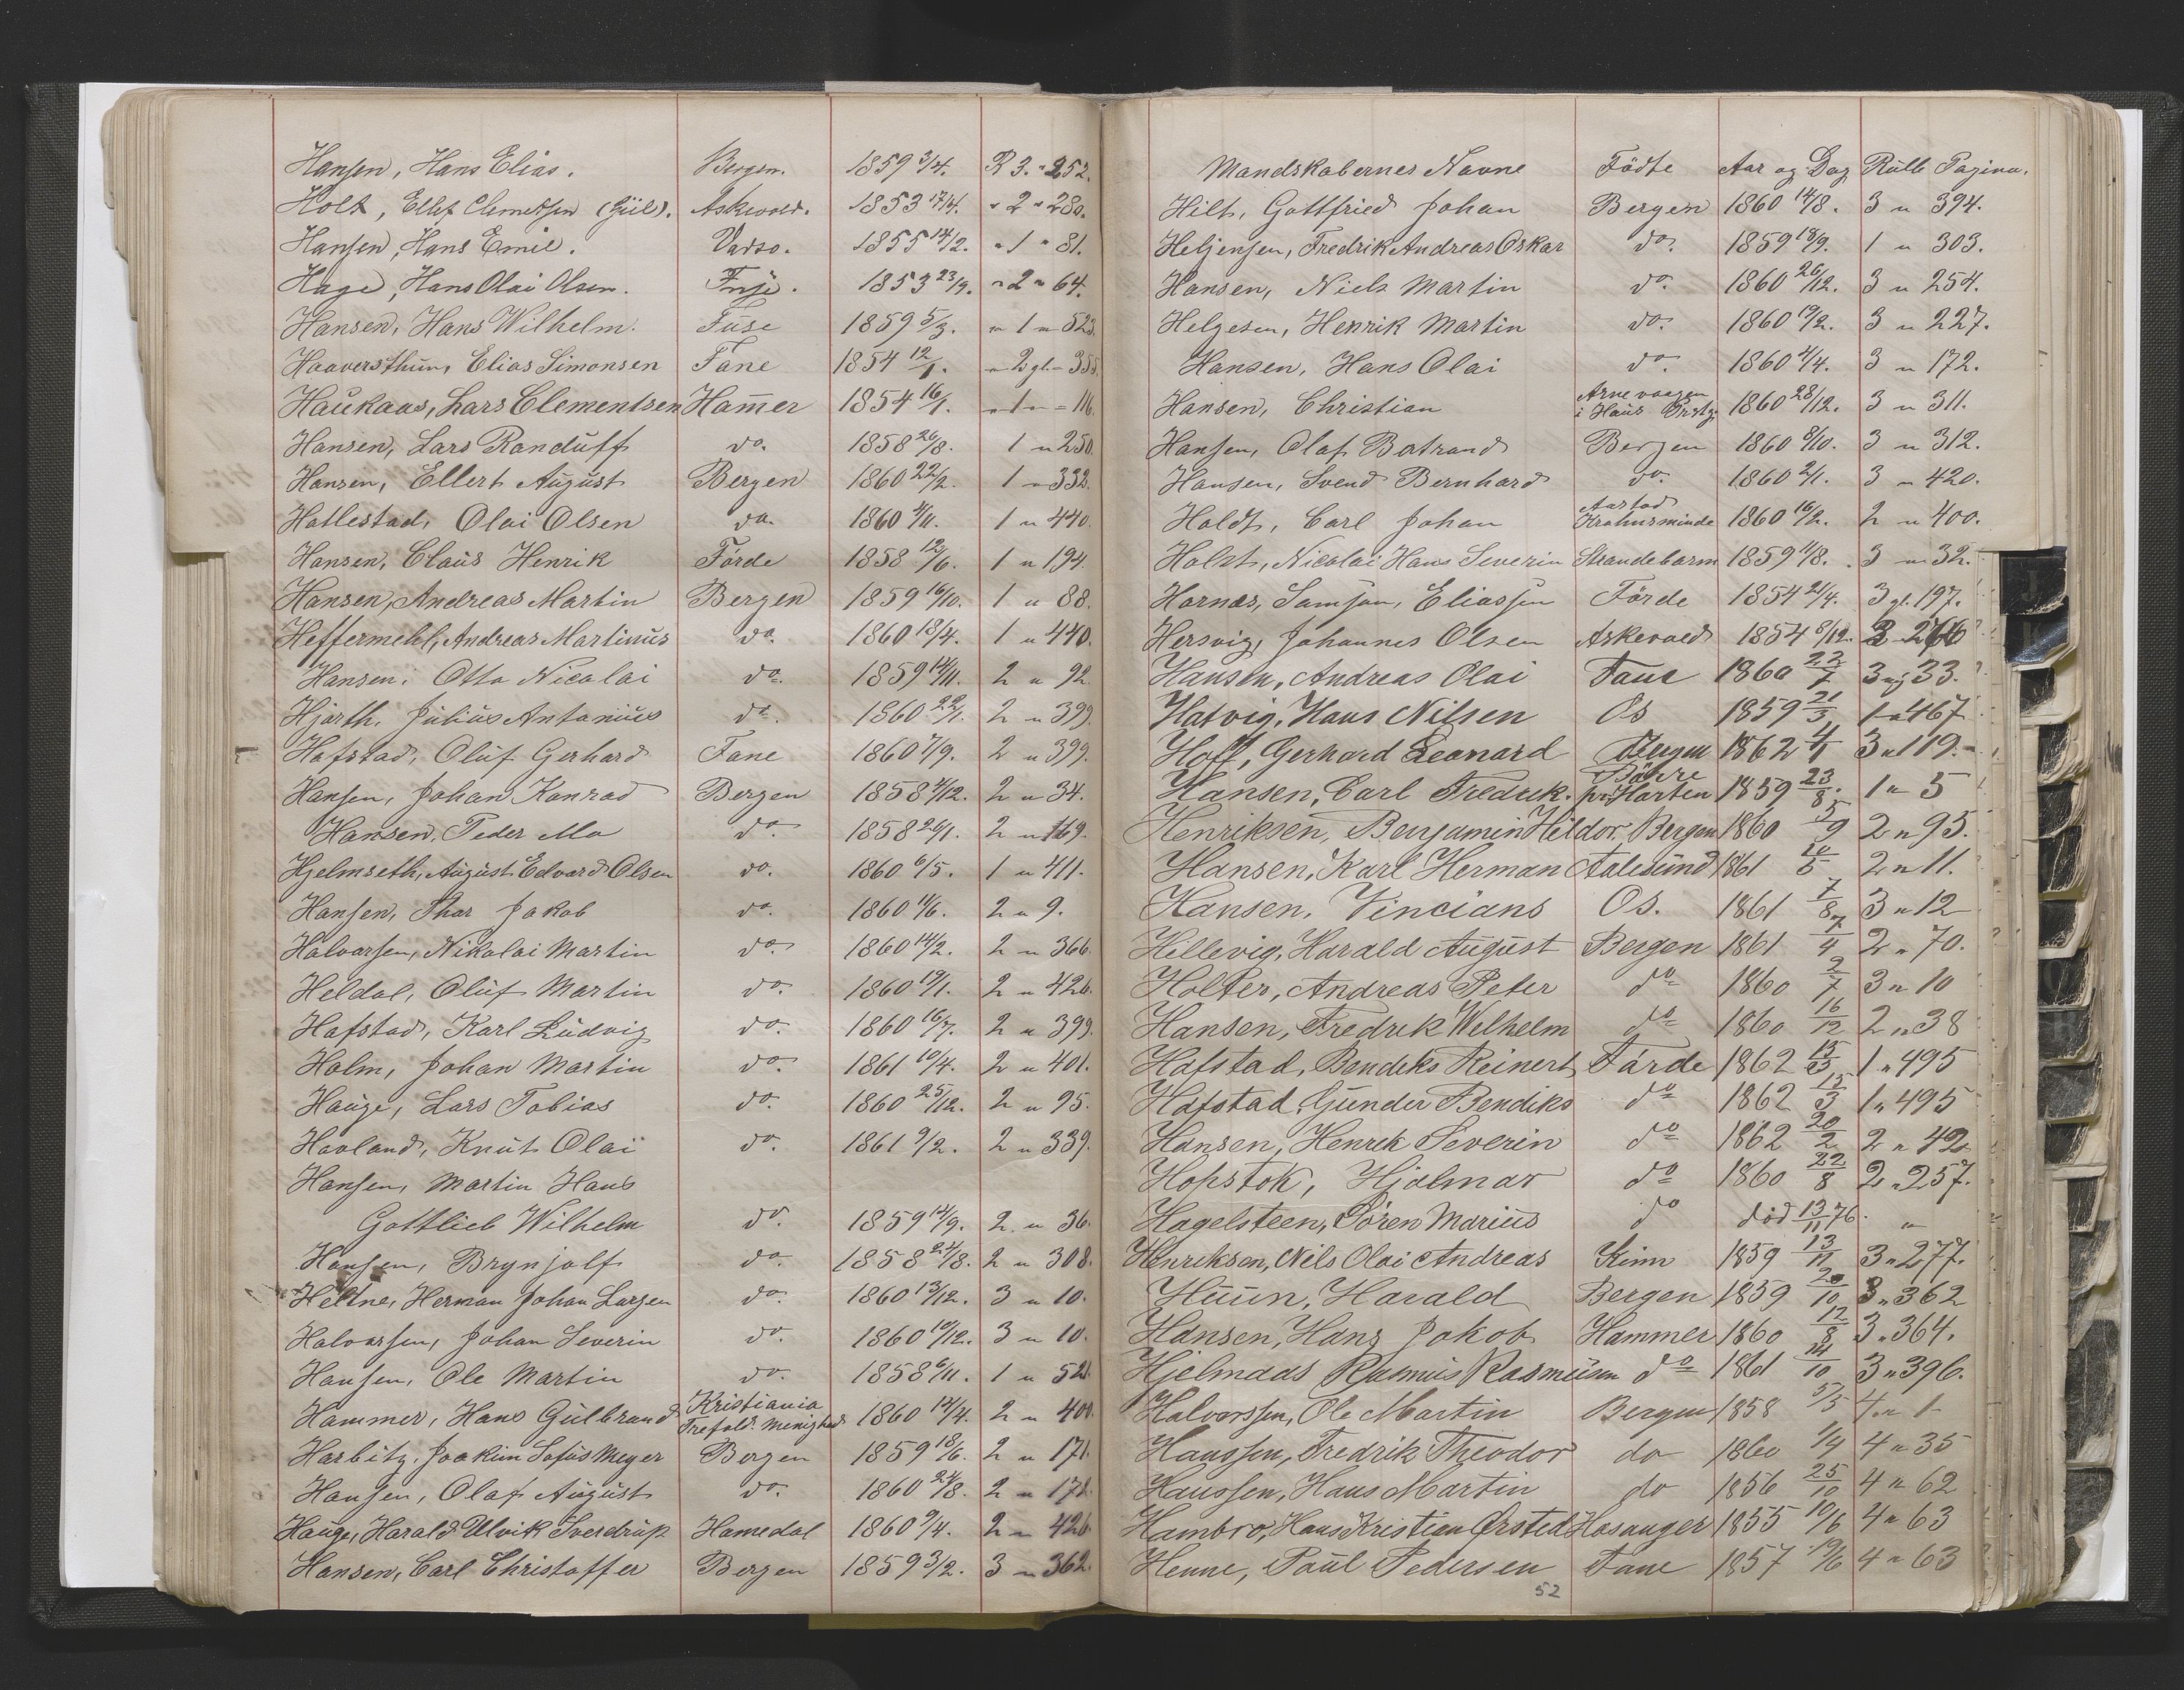 Hansen, Hans Elias. Bergen. 1859 3/4. R 3. " 252.
Holt, Ellef Clemetsen (Giil). Askevold. 1853 17/4. " 2 " 280.
Hansen, Hans Emil. Vadso. 1855 14/2. " 1 " 81.
Hage, Hans Olai Olsen. 1853 23/9. " 2 " 64.
Hansen, Hans Wilhelm. Fuse 1859 5/3. " 1 " 523.
Haaversthun, Elias Simonsen Fane 1854 12/1. " 2 gl. " 355.
Haukaas, Lars Clementsen Hamer 1854 16/1. " 1 " 116.
Hansen, Lars Randulf do. 1858 26/8. 1 " 250.
Hansen, Ellert August Bergen 1860 22/2. 1 " 332.
Hatlestad, Olai Olsen do. 1860 4/11. 1 " 440.
Hansen, Claus Henrik Förde 1858 12/6. 1 " 194.
Hansen, Andreas Martin Bergen 1859 16/10. 1 " 88.
Heffermehl, Andreas Martinus do. 1860 18/4. 1 " 440.
Hansen, Otto Nicolai do. 1859 14/11. 2 " 92.
Hjorth, Julius Antonius do. 1860 22/1. 2 " 399.
Hafstad, Oluf Gerhard Fane 1860 7/9. 2 " 399.
Hansen, Johan Konrad Bergen 1858 4/12. 2 " 34.
Hansen, Peder Mo do. 1858 26/1. 2 " 169.
Hjelmseth, August Edvard Olsen do. 1860 6/5. 1 " 411.
Hansen, Thor Jakob do. 1860 11/6. 2 " 9.
Halvorsen, Nikolai Martin do. 1860 14/2. 2 " 366.
Heldal, Oluf Martin do. 1860 19/1. 2 " 426.
Hafstad, Karl Ludvig do. 1860 16/7. 2 " 399.
Holm, Johan Martin do. 1861 10/4. 2 " 401.
Hauge, Lars Tobias do. 1860 25/12. 2 " 95.
Hovland, Knut Olai do. 1861 9/2. 2 " 339.
Hansen, Martin Hans
Gottlieb Wilhelm do. 1859 14/9. 2 " 36.
Hansen, Brynjolf do. 1858 24/8. 2 " 308.
Heltne, Herman Johan Larsen do. 1860 13/12. 3 " 10.
Halvorsen, Johan Severin do. 1860 10/12. 3 " 10.
Hansen, Ole Martin do. 1858 6/11. 1 " 52.
Hammer, Hans Gulbrand Kristiania Trefold. Menighed 1860 14/4. 2 " 400.
Harbitz, Joakim Sofus Meyer Bergen 1859 18/6. 2 " 171.
Hansen, Olaf August do. 1860 24/8. 2 " 178.
Hauge, Harald Ulvik Sverdrup Hamedal 1860 9/4. 2 " 426.
Hansen, Carl Christoffer Bergen 1859 3/2. 3 " 362.
Mandskabernes Navne Födte Aar og Dag Rulle Pagina.
Hilt, Gottfried Johan Bergen 1860 14/8. 3 " 394.
Heljensen, Fredrik Andreas Oskar do. 1859 18/9. 1 " 303.
Hansen, Niels Martin do. 1860 26/12. 3 " 254.
Helgesen, Henrik Martin do. 1860 19/2. 3 " 227.
Hansen, Hans Olai do. 1860 4/4. 3 " 172.
Hansen, Christian Arnevaagen i Haus Prstg. 1860 28/12. 3 " 311.
Hansen, Olaf Bertrand Bergen 1860 8/10. 3 " 312.
Hansen, Svend Bernhard do. 1860 2/1. 3 " 420.
Holdt, Carl Johan Aarstad Krohnsminde 1860 16/2. 2 " 400.
Holst, Nicolai Hans Severin Strandebarm 1859 11/8. 3 " 32.
Hornæs, Samson, Eliassen Förde 1854 21/4. 3 gl. 197.
Hersvig, Johannes Olsen Askevold 1854 8/12. 2 " 266
Hansen, Andreas Olai Fane 1860 22/7 3 " 33.
Hatvig, Hans Nilsen Os 1859 21/3 1 " 467
Hoff, Gerhard Leonard Bergen 1862 4/1 3 " 119.
Hansen, Carl Fredrik. pr. Horten 1859 23/8. 1 " 5
Henriksen, Benjamin Hildor. Bergen 1860 5/9 2 " 95.
Hansen, Karl Herman Aalesund 1861 10/5 2 " 11.
Hansen, Vincians Os. 1861 7/8 3 " 12
Hillevig, Harald August Bergen 1861 7/4 2 " 70.
Holter, Andreas Peter do 1860 2/7 3 " 10
Hansen, Fredrik Wilhelm do 1860 16/12 2 " 38
Hafstad, Bendiks Reinert Förde 1862 15/3 1 " 495
Hafstad, Gunder Bendiks do 1862 15/3 1 " 495
Hansen, Henrik Severin do 1862 20/2 2 " 42.
Hopstok, Hjalmar do 1860 22/8 2 " 257.
Hagelsteen, Sören Marius do död 13/11 76. "
Henriksen, Nils Olai Andreas Kinn 1859 13/11 3 " 277.
Huun, Harald Bergen 1859 20/10 3 " 362
Hansen, Hans Jakob Hammer 1860 12/8 3 " 364.
Hjelmaas Rasmus Rasmussen do 1861 14/10 3 " 396.
Halvorssen, Ole Martin Bergen 1858 5/5 4 " 1
Hanssen, Fredrik Theodor do 1860 1/9 4 " 35
Hanssen, Hans Martin do 1856 25/10 4 " 62
Hambro, Hans Kristian Ørsted Hosanger 1855 10/6 4 " 63
Henne, Paul Pedersen Fane 1857 19/6 4 " 63
52
J
K